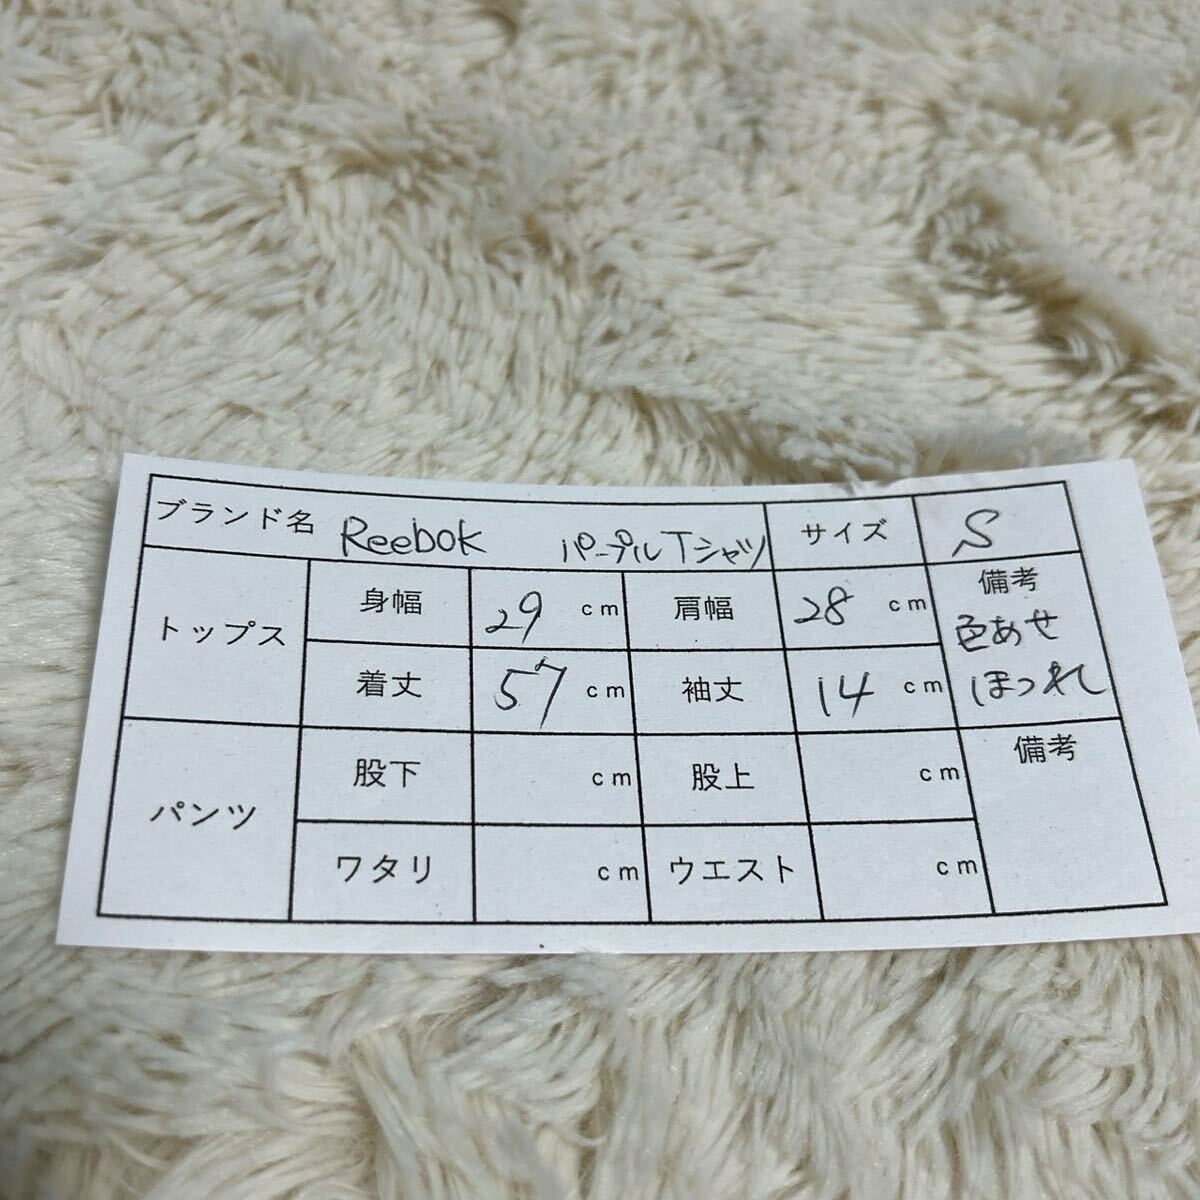 ブランド名 Reebok パープルTシャツ サイズ S
トップス 身幅 29 cm 肩幅 28 cm 備考
色あせ
着丈 57 cm 袖丈 14 cm ほつれ
パンツ 股下 cm 股上 cm 備考
ワタリ cm ウエスト cm